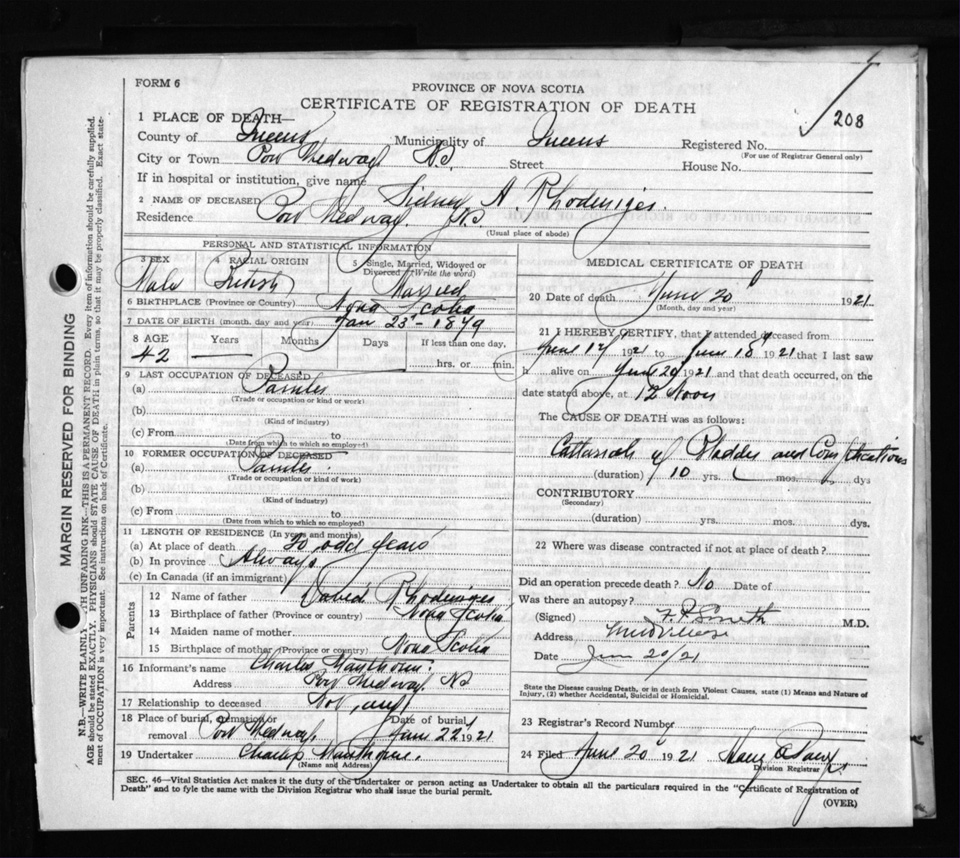 FORM 6
PROVINCE OF NOVA SCOTIA
CERTIFICATE OF REGISTRATION OF DEATH
208
1 PLACE OF DEATH—
County of Queens Municipality of Queens Registered No.
(For use of Registrar General only)
City or Town Port Medway N.S. Street House No.
If in hospital or institution, give name
2 NAME OF DECEASED Sidney A. Rhodeniser.
Residence Port Medway. N.S.
(Usual place of abode)
PERSONAL AND STATISTICAL INFORMATION
3 SEX 4 RACIAL ORIGIN 5 Single, Married, Widowed or Divorced (Write the word)
Male British Married
6 BIRTHPLACE (Province or Country) Nova Scotia
7 DATE OF BIRTH (month, day and year) Jan 23rd - 1879
8 AGE Years Months Days If less than one day.
42 hrs. or min.
9 LAST OCCUPATION OF DECEASED
(a) Painter
(Trade or occupation or kind of work)
(b)
(Kind of industry)
(c) From to
(Date from which to which so employed)
10 FORMER OCCUPATION OF DECEASED
(a) Painter.
(Trade or occupation or kind of work)
(b)
(Kind of industry)
(c) From to
(Date from which to which so employed)
11 LENGTH OF RESIDENCE (In years and months)
(a) At place of death odd years
(b) In province Always
(c) In Canada (if an immigrant)
Parents
12 Name of father David Rhodeniser
13 Birthplace of father (Province or country) Nova Scotia
14 Maiden name of mother
15 Birthplace of mother (Province or country) Nova Scotia
16 Informant's name Charles
Address Port Medway. N.S
17 Relationship to deceased Not any
18 Place of burial, cremation or removal Port Medway. Date of burial June 22 1921
19 Undertaker Charles
(Name and Address)
MEDICAL CERTIFICATE OF DEATH
20 Date of death June 20 1921
(Month, day and year)
21 I HEREBY CERTIFY, that I attended deceased from
June 17 1921 to June 18 1921 that I last saw
h alive on June 20 1921 and that death occurred, on the
date stated above, at 12 Noon
The CAUSE OF DEATH was as follows:
Cattarrah of Bladder and Complications
(duration) 10 yrs. mos. dys
CONTRIBUTORY
(Secondary)
(duration) yrs. mos. dys.
22 Where was disease contracted if not at place of death?
Did an operation precede death? No Date of
Was there an autopsy?
(Signed) F.P. Smith M.D.
Address Mill Village
Date Jun 20/21
State the Disease causing Death, or in death from Violent Causes, state (1) Means and Nature of
Injury, (2) whether Accidental, Suicidal or Homicidal.
23 Registrar's Record Number
24 Filed June 20 1921
Division Registrar
SEC. 46—Vital Statistics Act makes it the duty of the Undertaker or person acting as Undertaker to obtain all the particulars required in the "Certificate of Registration of
Death" and to fyle the same with the Division Registrar who shall issue the burial permit.
(OVER)
MARGIN RESERVED FOR BINDING
N.B.—WRITE PLAINLY UNFADING INK—THIS IS A PERMANENT RECORD. Every item of information should be carefully supplied.
AGE should be stated EXACTLY. PHYSICIANS should STATE CAUSE OF DEATH in plain terms, so that it may be properly classified. Exact state-
ment of OCCUPATION is very important. See instructions on back of Certificate.